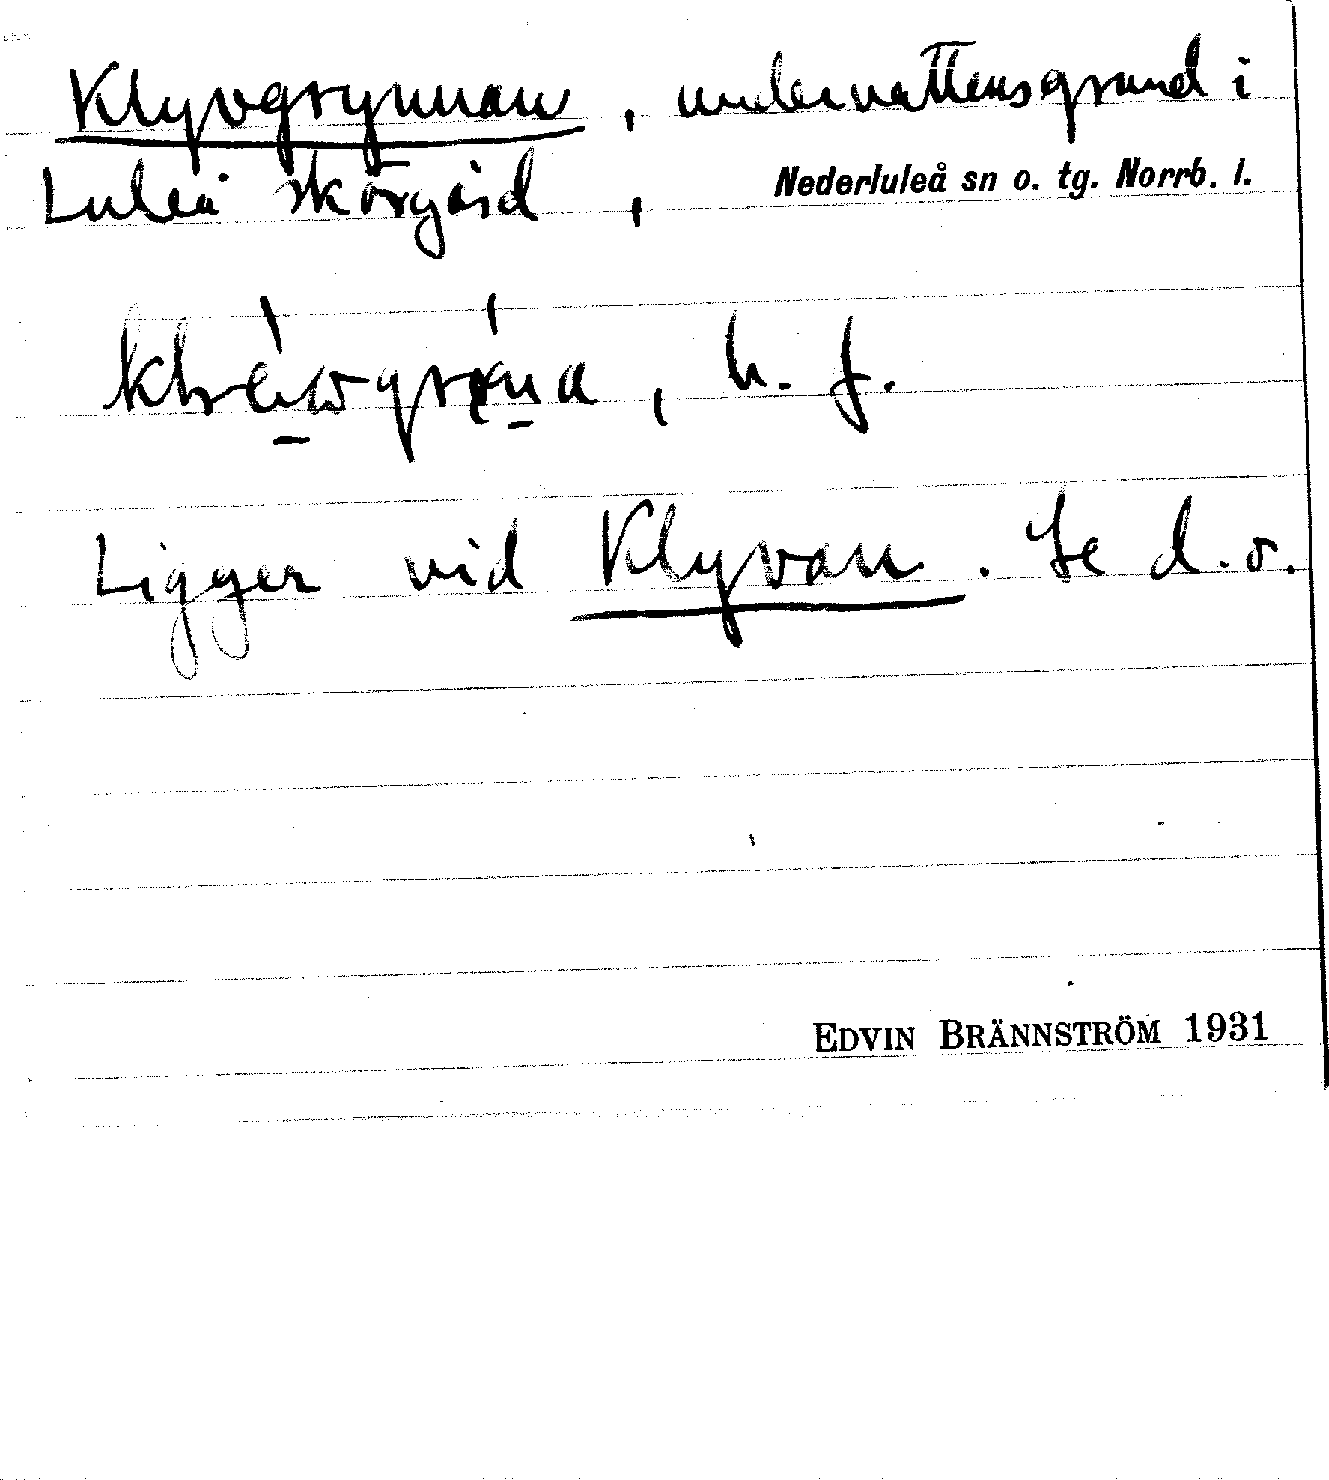 Klyvgrynnan, undervattensgrund i
Luleå skärgård, Nederluleå sn o. tg. Norrb. l.
, b. f.
Ligger vid Klyvan. Se d.o.
EDVIN BRÄNNSTRÖM 1931